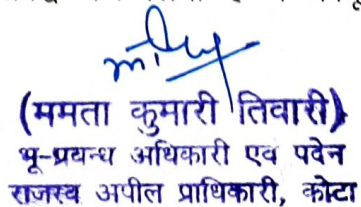 (ममता कुमारी तिवारी)
भू-प्रबन्ध अधिकारी एव पदेन
राजस्व अपील प्राधिकारी, कोटा